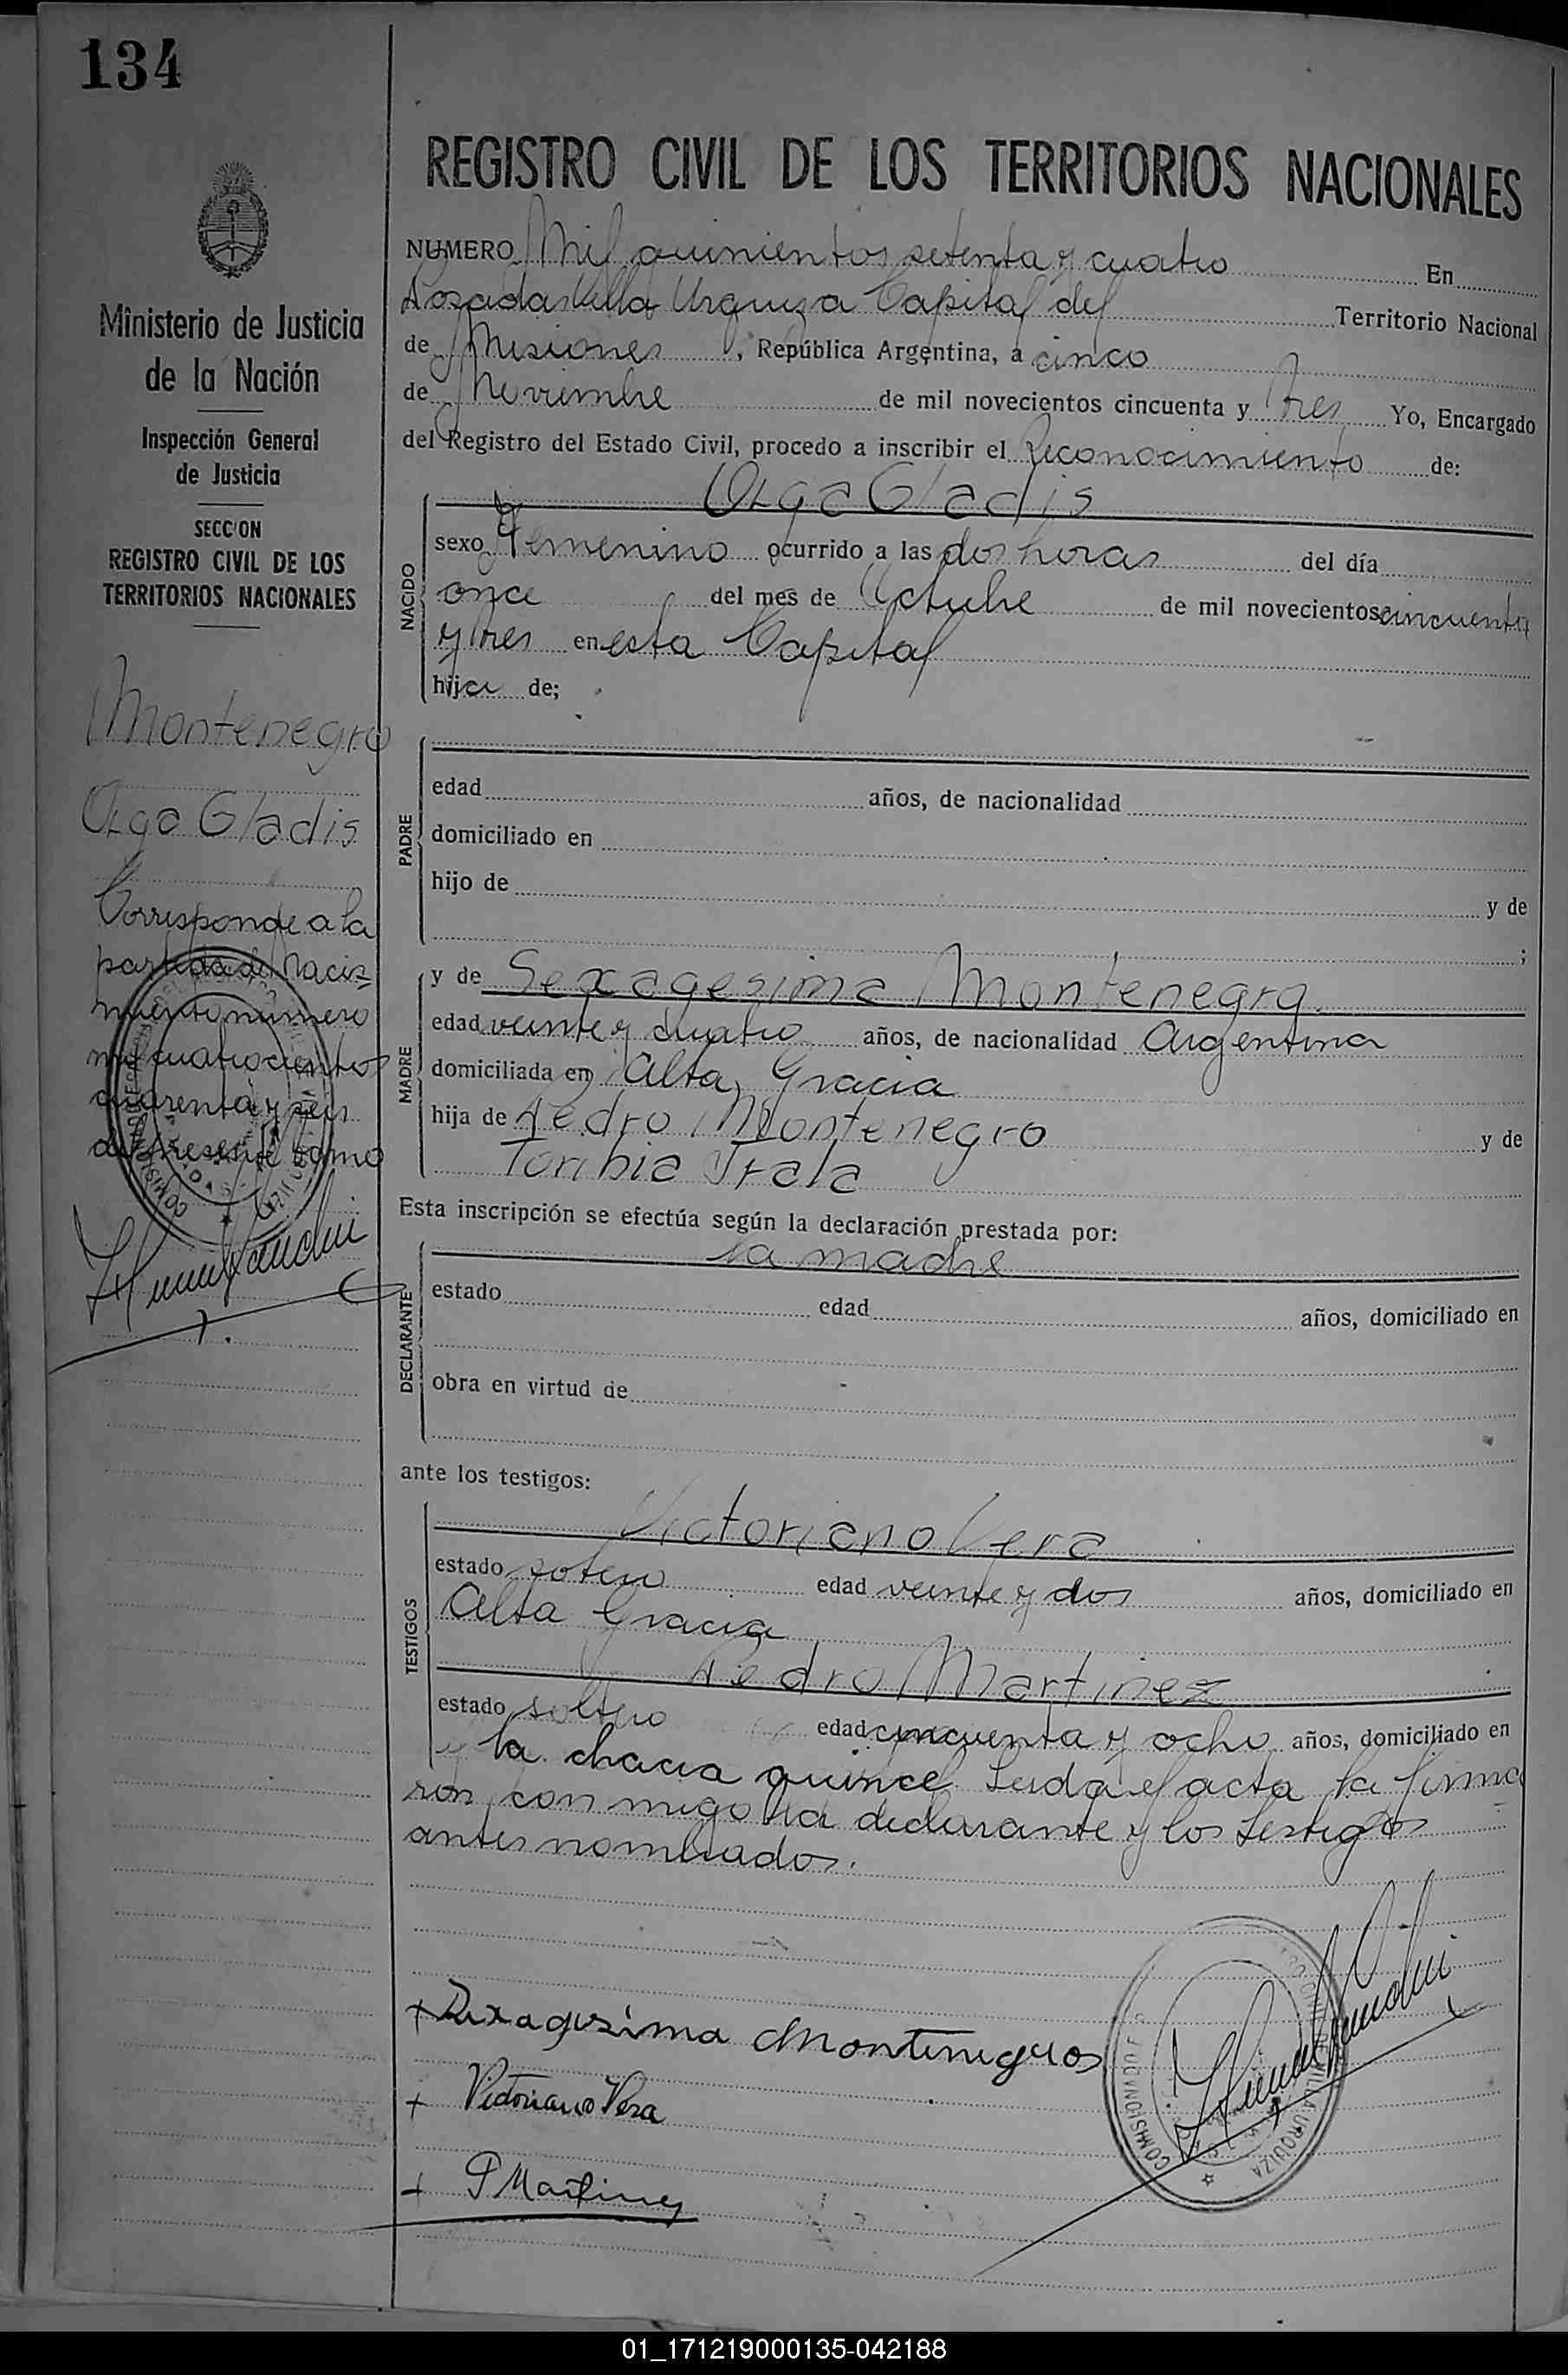 134
Ministerio de Justicia
de la Nación
Inspección General
de Justicia
SECCION
REGISTRO CIVIL DE LOS
TERRITORIOS NACIONALES
Montenegro
Olga Gladis
Corresponde a la
partida de Naci-
miento número
mil cuatrocientos
cuarenta y seis
del presente tomo
REGISTRO CIVIL DE LOS TERRITORIOS NACIONALES
NUMERO Mil quinientos setenta y cuatro En
Posadas Villa Urquiza Capital del Territorio Nacional
de Misiones, República Argentina, a cinco
de Noviembre de mil novecientos cincuenta y tres Yo, Encargado
del Registro del Estado Civil, procedo a inscribir el Reconocimiento de:
Olga Gladis
NACIDO
sexo Femenino ocurrido a las dos horas del día
once del mes de Octubre de mil novecientos cincuenta
y tres en esta Capital
hija de;
PADRE
edad años, de nacionalidad
domiciliado en
hijo de y de
;
MADRE
y de Sexagesima Montenegro
edad veinte y cuatro años, de nacionalidad Argentina
domiciliada en Alta Gracia
hija de Pedro Montenegro y de
Toribia Irala
Esta inscripción se efectúa según la declaración prestada por:
la madre
DECLARANTE
estado edad años, domiciliado en
obra en virtud de
ante los testigos:
TESTIGOS
Victoriano Vera
estado soltero edad veinte y dos años, domiciliado en
Alta Gracia
Pedro Martinez
estado soltero edad cincuenta y ocho años, domiciliado en
la chacra quince. Leida el acta la firma
ron con migo la declarante y los testigos
antes nombrados.
+ Sexagesima Montenegros
+ Victoriano Vera
+ P Martinez
VILLA URQUIZA
01_171219000135-042188